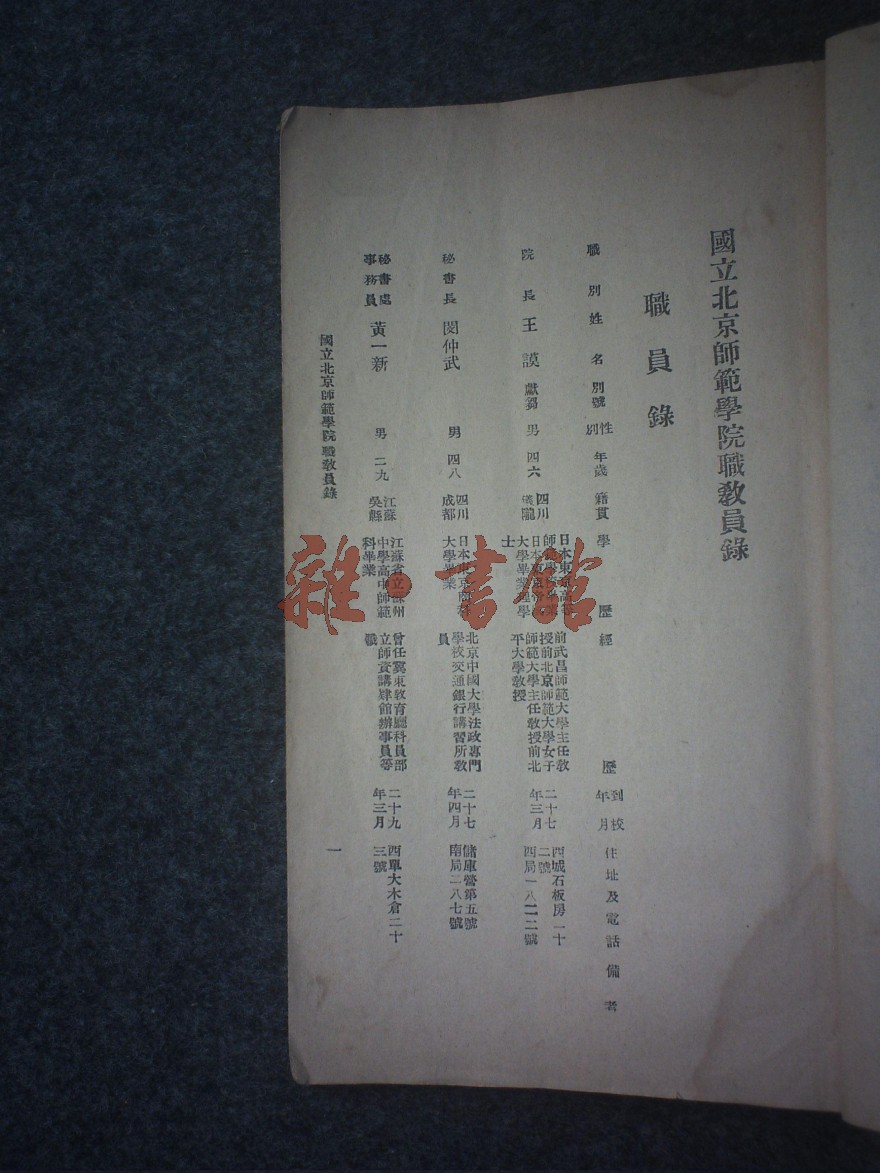 國立北京師範學院職教員錄
職員錄
職別 姓名 別號 性別 年歲 籍貫 學歷 經歷 到校年月 住址及電話 備考
院長 王謨 獻芻 男 四六 四川
日本東京高等
師範學校畢業
日本東京帝國
大學畢業理學
士
前武昌師範大學主任教
授前北京師範大學女子
師範大學主任教授前北
平大學教授
二十七
年三月
西城石板房二十
二號
西局一八二二號
秘書長 閔仲武 男 四八 四川
成都
日本東京商科
大學畢業
北京中國大學法政專門
學校交通銀行講習所教
員
二十七
年四月
儲庫營第五號
南局二八七號
秘書處
事務員 黃一新 男 二九 江蘇
吳縣
江蘇省立蘇州
中學高中師範
科畢業
曾任冀東教育廳科員部
立師資講肄館辦事員等
職
二十九
年三月
西單大木倉二十
三號
國立北京師範學院職教員錄
一
雜·書館